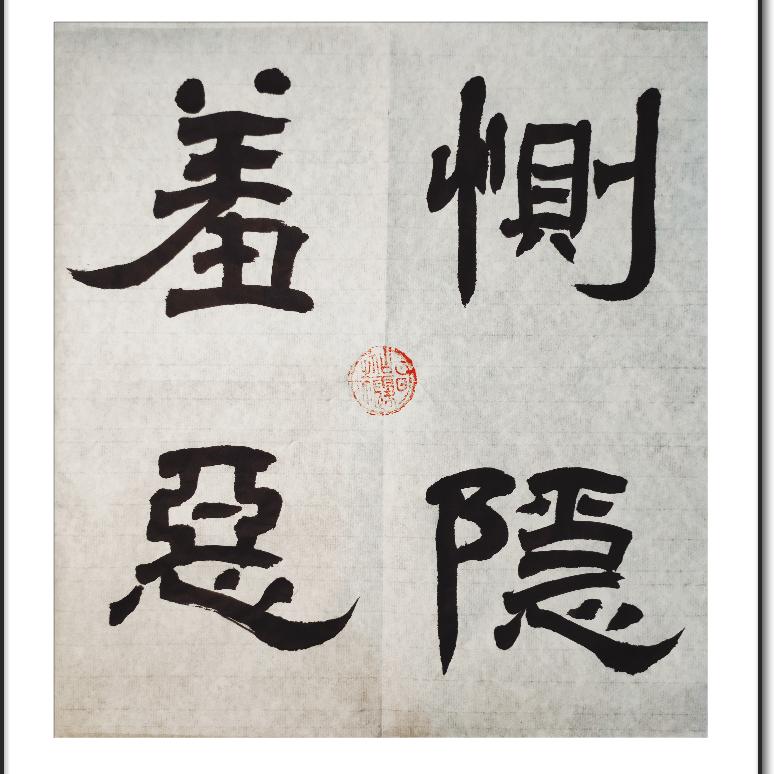 惻隱
羞惡